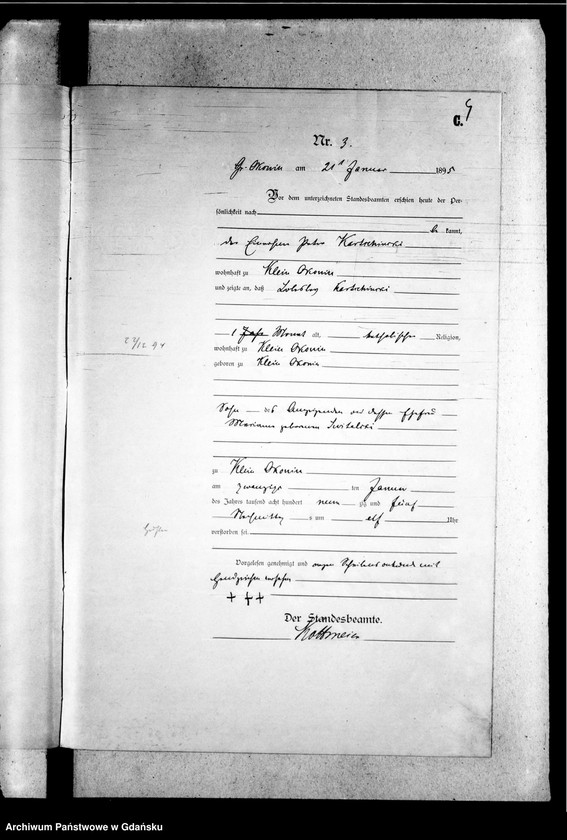 C. 4
Nr. 3.
Gr. Okonin am 21 Januar 1895
Vor dem unterzeichneten Standesbeamten erschien heute der Per-
sönlichkeit nach
be kannt,
der Peter Kartschinski
wohnhaft zu Klein Okonin
und zeigte an, daß Kartschinski
1 Jahre Monat alt, katholischer Religion,
23/12 94
wohnhaft zu Klein Okonin
geboren zu Klein Okonin
Sohn des Anzeigenden und dessen Ehefrau
Marianna geborenen
zu Klein Okonin
am zwanzigs ten Januar
des Jahres tausend acht hundert neun zig und fünf
Nachmittag s um elf Uhr
verstorben sei.
Vorgelesen, genehmigt und wegen Schreibensunkunde mit
Handzeichen versehen
+ + +
Der Standesbeamte.